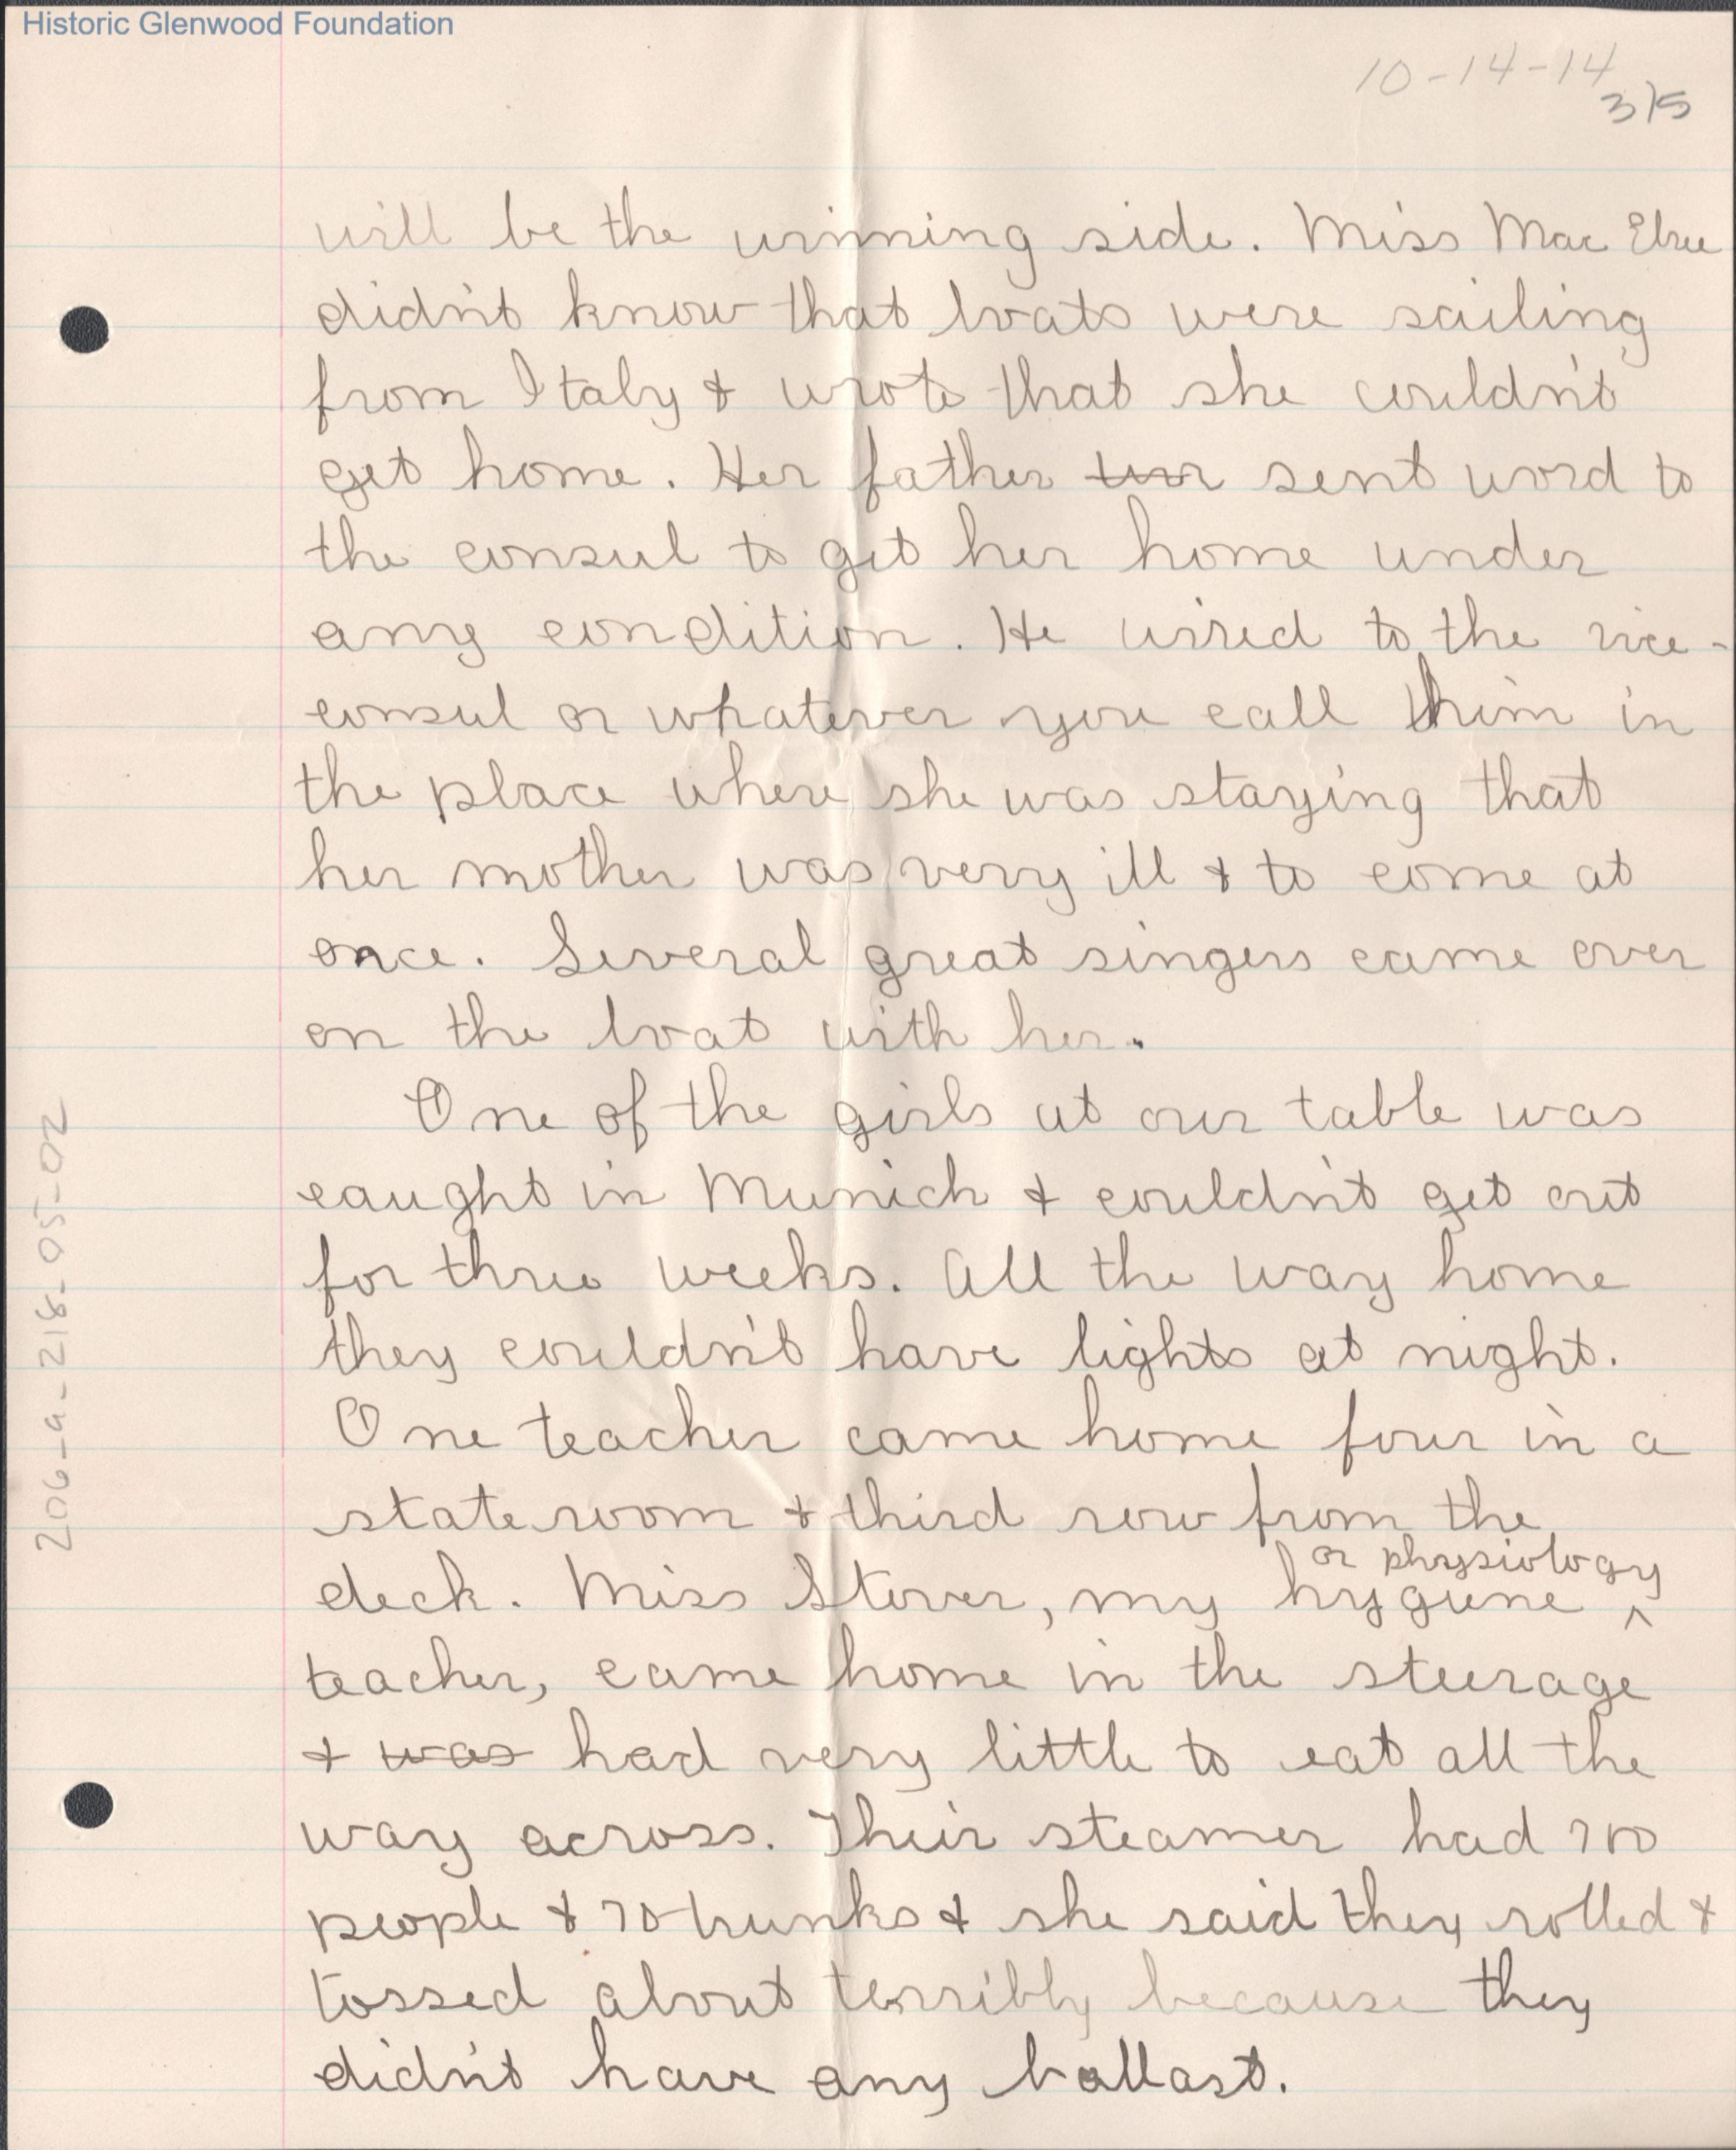 Historic Glenwood Foundation
10-14-14
3/5
will be the winning side. Miss Mac Elree
didn't know that boats were sailing
from Italy & wrote that she couldn't
get home. Her father sent word to
the consul to get her home under
any condition. He wired to the vice-
consul or whatever you call him in
the place where she was staying that
her mother was very ill & to come at
once. Several great singers came over
on the boat with her.
One of the girls at our table was
caught in Munich & couldn't get out
for three weeks. All the way home
they couldn't have lights at night.
One teacher came home four in a
stateroom & third row from the
deck. Miss Stover, my hygiene ^ or physiology
teacher, came home in the steerage
& was had very little to eat all the
way across. Their steamer had 700
people & 70 trunks & she said they rolled &
tossed about terribly because they
didn't have any ballast.
206-a-218-05-02